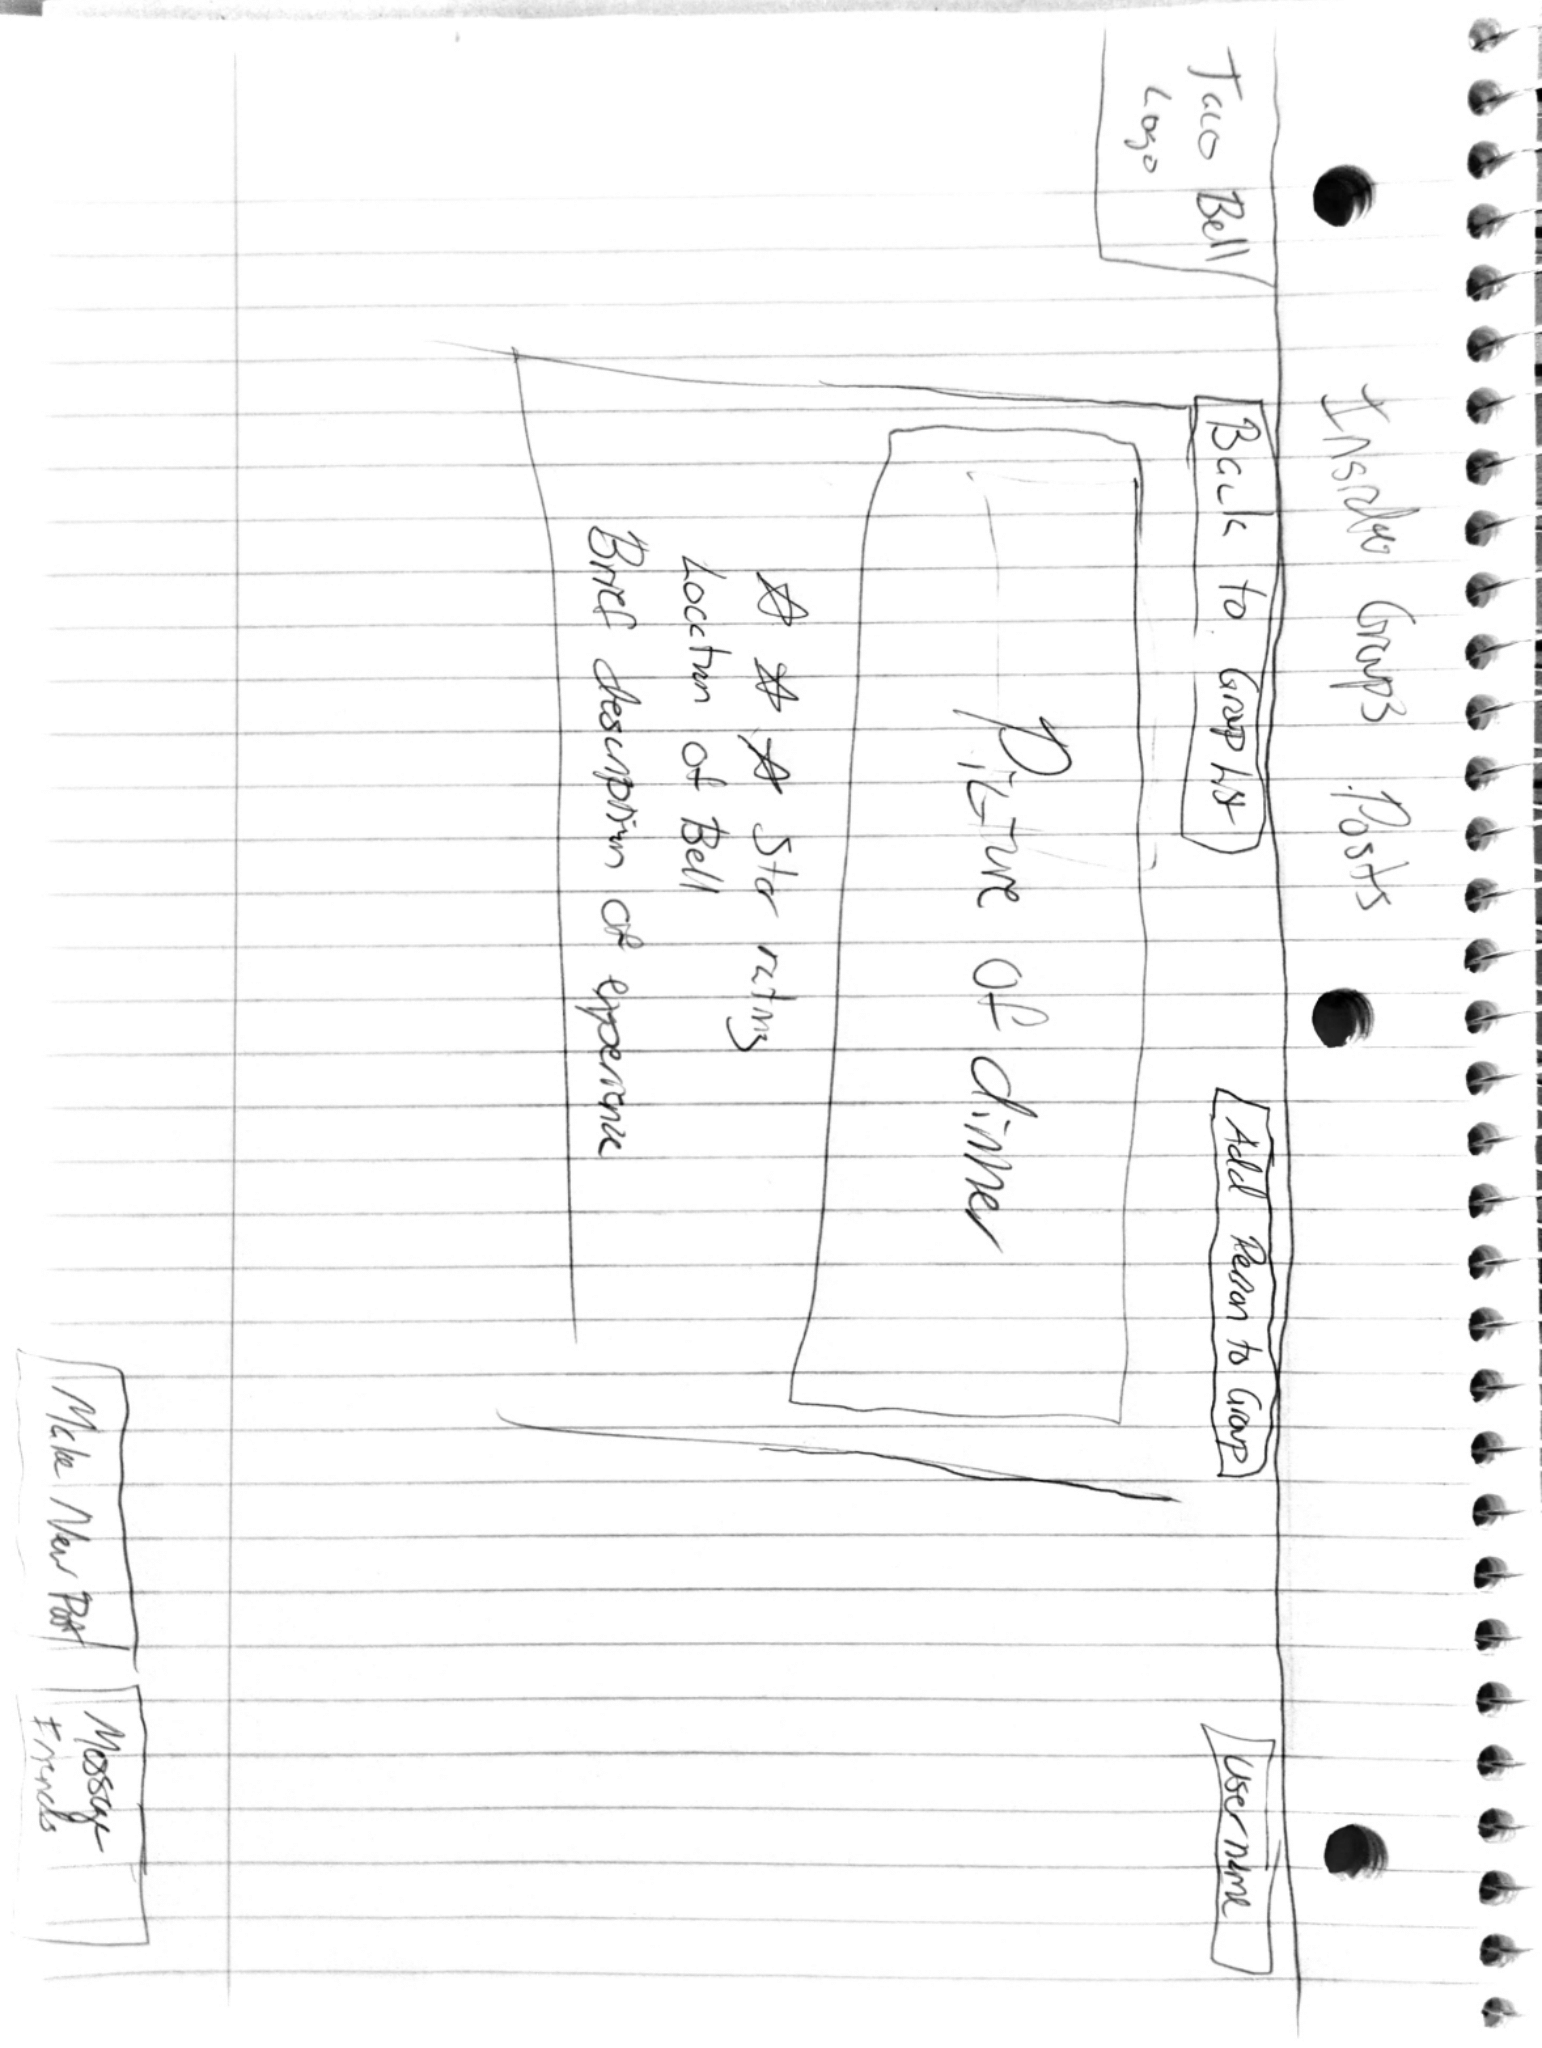 Inside Groups Posts
Taco Bell
Logo
Back to Group List
Add Person to Group
Username
Picture of dinner
Star rating
Location of Bell
Brief description of experience
Make New Post
Message
Friends